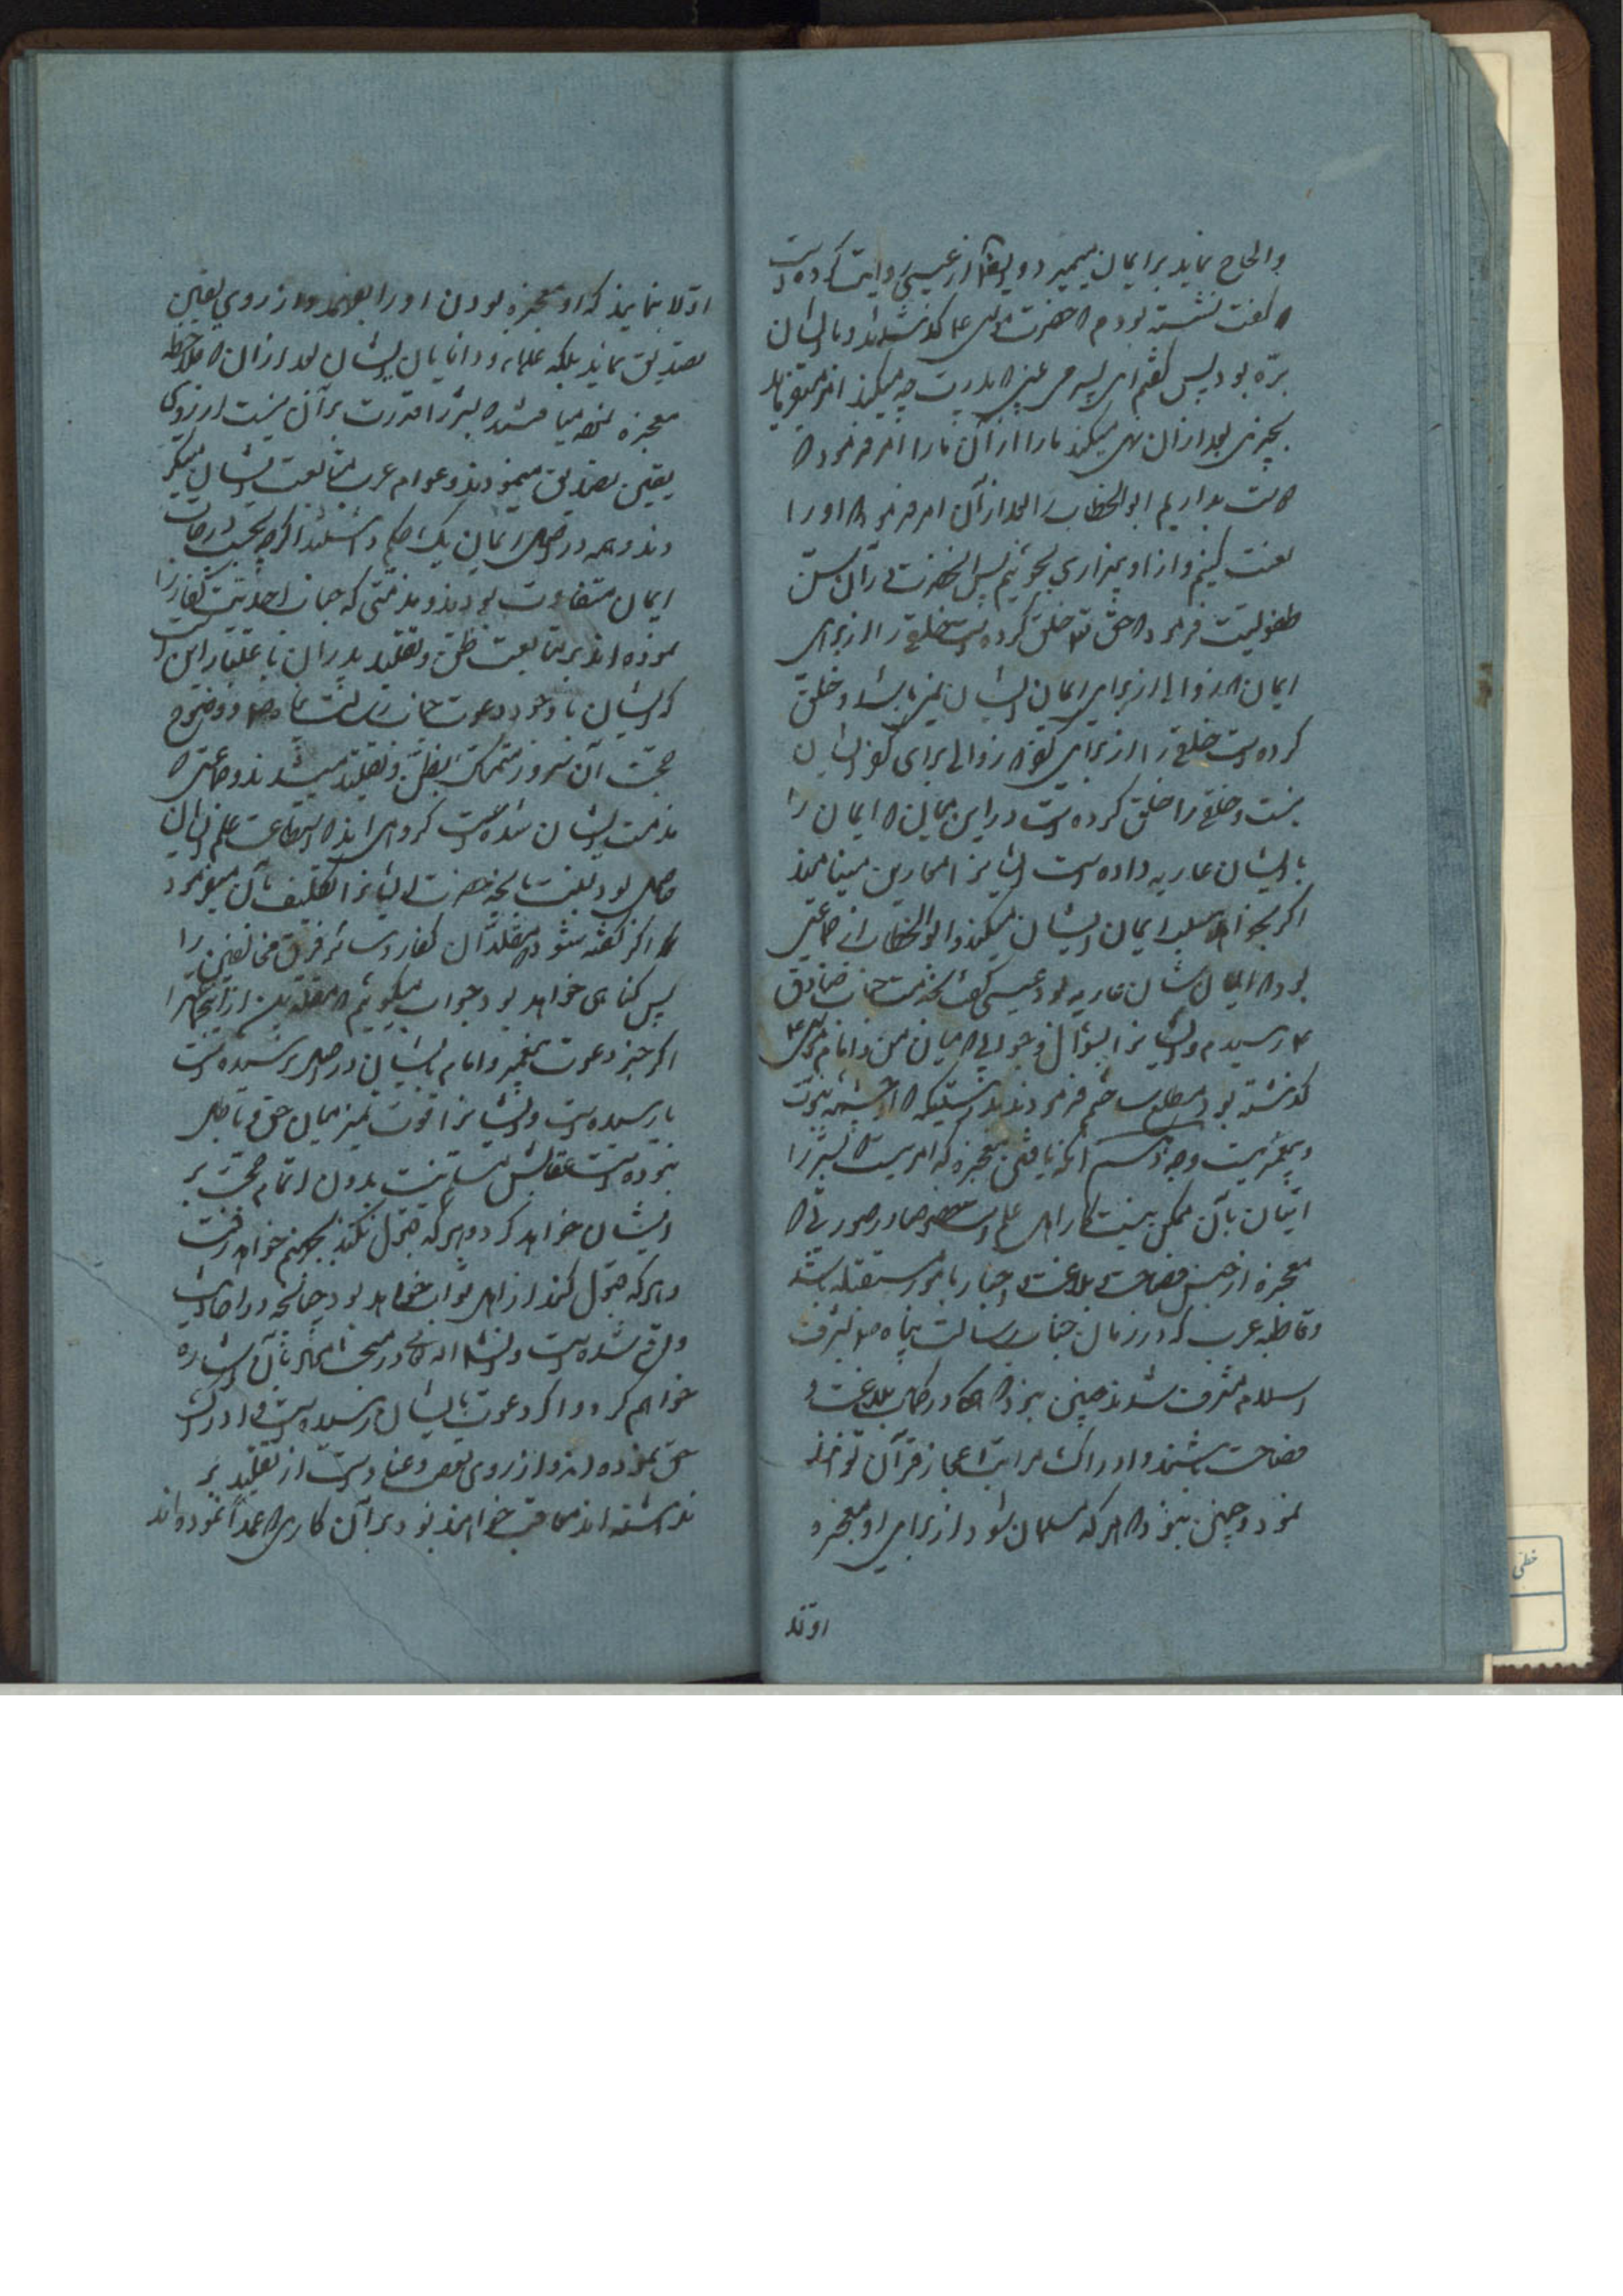 والحاح نماید بر ایمان میمیرد و ایضا از عیسی روایت کرده است
که گفت نشسته بودم که حضرت موسی ع گذشتند و با ایشان
بره بود پس گفتم ای پسر می بینی که پدرت چه میکند امر میفرماید
بچیزی بعد از آن نهی میکند ما را از آن ما را امر فرمود که
دوست بداریم ابو الخطاب را بعد از آن امر فرمود که او را
لعنت کنیم و از او بیزاری بجوئیم پس آنحضرت در آن سن
طفولیت فرمود که حق تعالی خلق کرده است خلقی را از برای
ایمان که زوالی از برای ایمان ایشان نمی باشد و خلق
کرده است خلقی را از برای کفر که زوالی برای کفر ایشان
نیست و خلقی را خلق کرده است در این میان که ایمان را
بایشان عاریه داده است ایشانرا معارین مینامند
اگر بخواهد سلب ایمان ایشان میکند و ابو الخطاب از جماعتی
بود که ایمان ایشان عاریه بود عیسی گفت بخدمت جناب صادق
ع رسیدم و ایشانرا بسؤال و جوابی که میان من و امام موسی ع
گذشته بود مطلع ساختم فرمودند بدرستیکه او از چشمه نبوت
و پیغمبریست وجه آنکه یافتن معجزه که امریست که بشر را
اتیان بآن ممکن نیست کار اهل علم است خصوصا در صورتی که
معجزه از جنس فصاحت و بلاغت و اخبار بامور مستقبله باشد
و قاطبه عرب که در زمان جناب رسالت پناه ص بشرف
اسلام مشرف شدند چنین نبود که همه در کمال بلاغت و
فصاحت باشند و ادراک مراتب اعجاز قرآن توانند
نمود و چنین نبود که هر که مسلمان شود از برای او معجزه
اولا
اولا بنمایند که او معجزه بودن او را بفهمد و از روی یقین
تصدیق نماید بلکه علماء و دانایان ایشان بعد از آن که ملاحظه
معجزه مینمودند که بشر را قدرت بر آن نیست از روی
یقین تصدیق مینمودند و عوام عرب متابعت ایشان میکر
دند و همه در اصل ایمان یک حکم داشتند اگرچه بحسب درجات
ایمان متفاوت بودند و مذمتی که جناب احدیت کفار را
نموده اند بر متابعت ظن و تقلید پدران باعتبار این است
که ایشان با وجود دعوت جناب رسالت پناه ص و وضوح
حجت آن سرور متمسک بظن و تقلید میشدند و جماعتی که
مذمت ایشان شده است گروهی اند که استطاعت علم ایشان
حاصل بود بعنت بآنچه حضرت ایشانرا تکلیف بآن میفرمود
و اگر گفته شود که مقلدان کفار و سائر فرق مخالفین را
پس گناهی خواهد بود جواب میگوئیم که مقلدین از ایشانرا
اگر خبر دعوت پیغمبر و امام بایشان در اصل نرسیده است
یا رسیده است و ایشانرا قوت تمیز میان حق و باطل
نبوده است عقابش مسلم نیست بدون اتمام حجت بر
ایشان خواهد کرد و هر که قبول نکند بجهنم خواهد رفت
و هر که قبول کند از اهل ثواب خواهد بود چنانچه در احادیث
واقع شده است و انشاء الله در مبحث بآن اشاره
خواهم کرد و اگر دعوت بایشان رسیده است و ادراک
حق نموده اند و از روی تعصب و عناد دست از تقلید بر
نداشته اند معاقب خواهند بود بر آن کاری که عمداً نموده اند